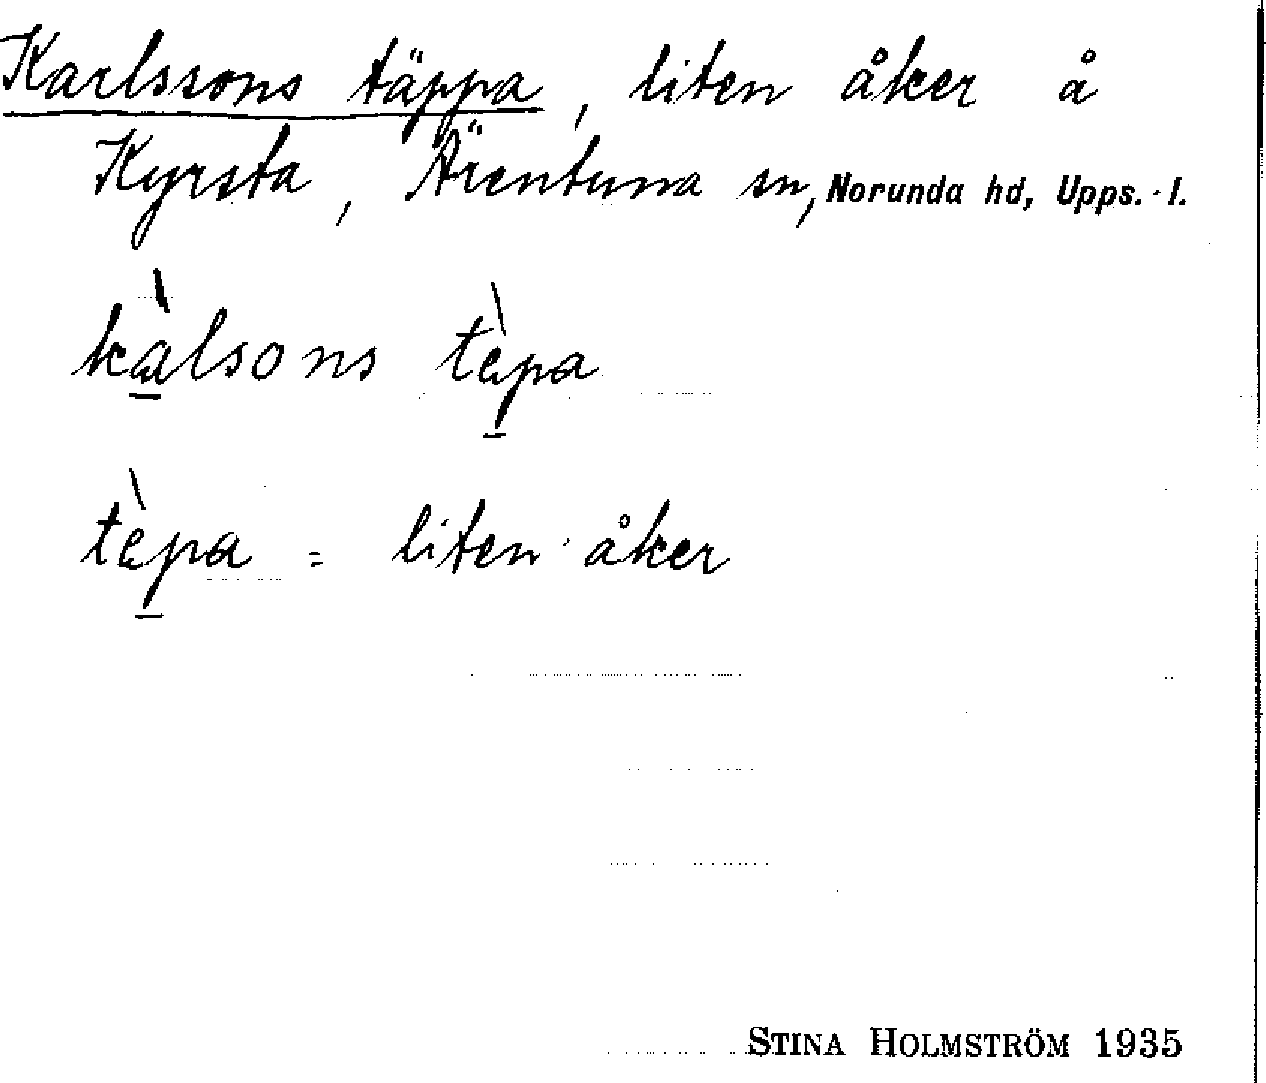 Karlssons täppa, liten åker å
Kyrsta, Ärentuna sn, Norunda hd, Upps. l.
kàlsons tèpa
tèpa = liten åker
STINA HOLMSTRÖM 1935